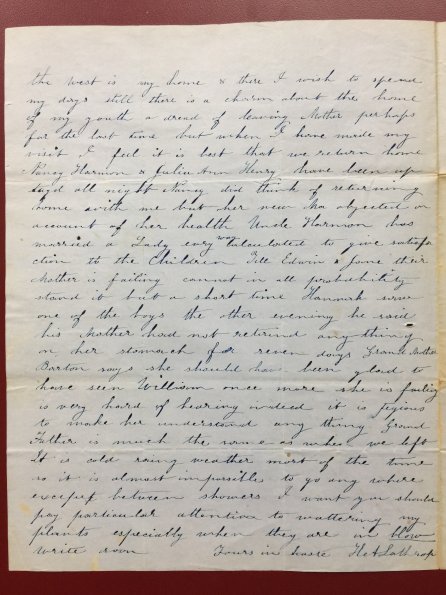 the west is my home & there I wish to spend
my days still there is a charm about the home
of my youth a dread of leaving Mother perhaps
for the last time but when I have made my
visit I feel it is best that we return home
Nancy Harmon & Julia Ann Henry have been up
stayd all night Nancy did think of returning
home with me but her new Ma objected on
account of her health Uncle Harmon has
married a Lady every way calculated to give satisfa
ction to the Children Tell Edwin & Jane their
Mother is failing cannot in all probability
stand it but a short time Hannah saw
one of the boys the other evening he said
his Mother had not retaind any thing
on her stomach for seven days Grand Mother
Barton says she should have been glad to
have seen William once more she is failing
is very hard of hearing indeed it is
to make her understand any thing Grand
Father is much the same as when we left
It is cold rainy weather most of the time
so it is almost impossible to go any where
except between showers I want you should
pay particular attention to wattering my
plants especially when they are in blow
write soon Yours in haste H A Lathrop